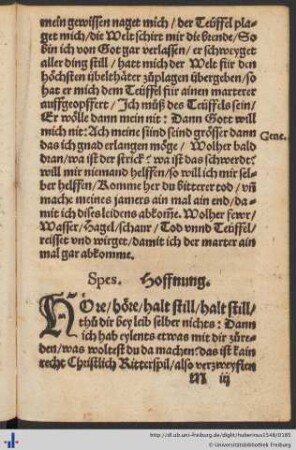 mein gewissen naget mich / der Teüffel pla-
get mich / die Welt schirt mir die hende / So
bin ich von Got gar verlassen / er schweyget
aller ding still / hatt mich der Welt für den
höchsten übelthäter zůplagen übergeben / so
hat er mich dem Teüffel für ainen marterer
auffgeopffert / Jch můß des Teüffels sein /
Er wölle dann mein nit: Dann Gott will
mich nit: Ach meine sünd seind grösser dann
das ich gnad erlangen möge / Wolher bald
Gene.
dran / wa ist der strick? wa ist das schwerdt?
will mir niemand helffen / so will ich mir sel-
ber helffen / Komme her du bitterer tod / vñ
mache meines jamers ain mal ain end / da-
mit ich dises leidens abkom̃e. Wolher fewr /
Wasser / Hagel / schaur / Tod vnnd Teüffel /
reisset vnd würget / damit ich der marter ain
mal gar abkomme.
Spes. Hoffnung.
HÖre / höre / halt still / halt still /
thů dir bey leib selber nichts: Dann
ich hab eylents etwas mit dir zůre-
den / was woltest du da machen? das ist kain
recht Christlich Ritterspil / also verzweyflen
M iij
http://dl.ub.uni-freiburg.de/diglit/huberinus1548/0185
© Universitätsbibliothek Freiburg